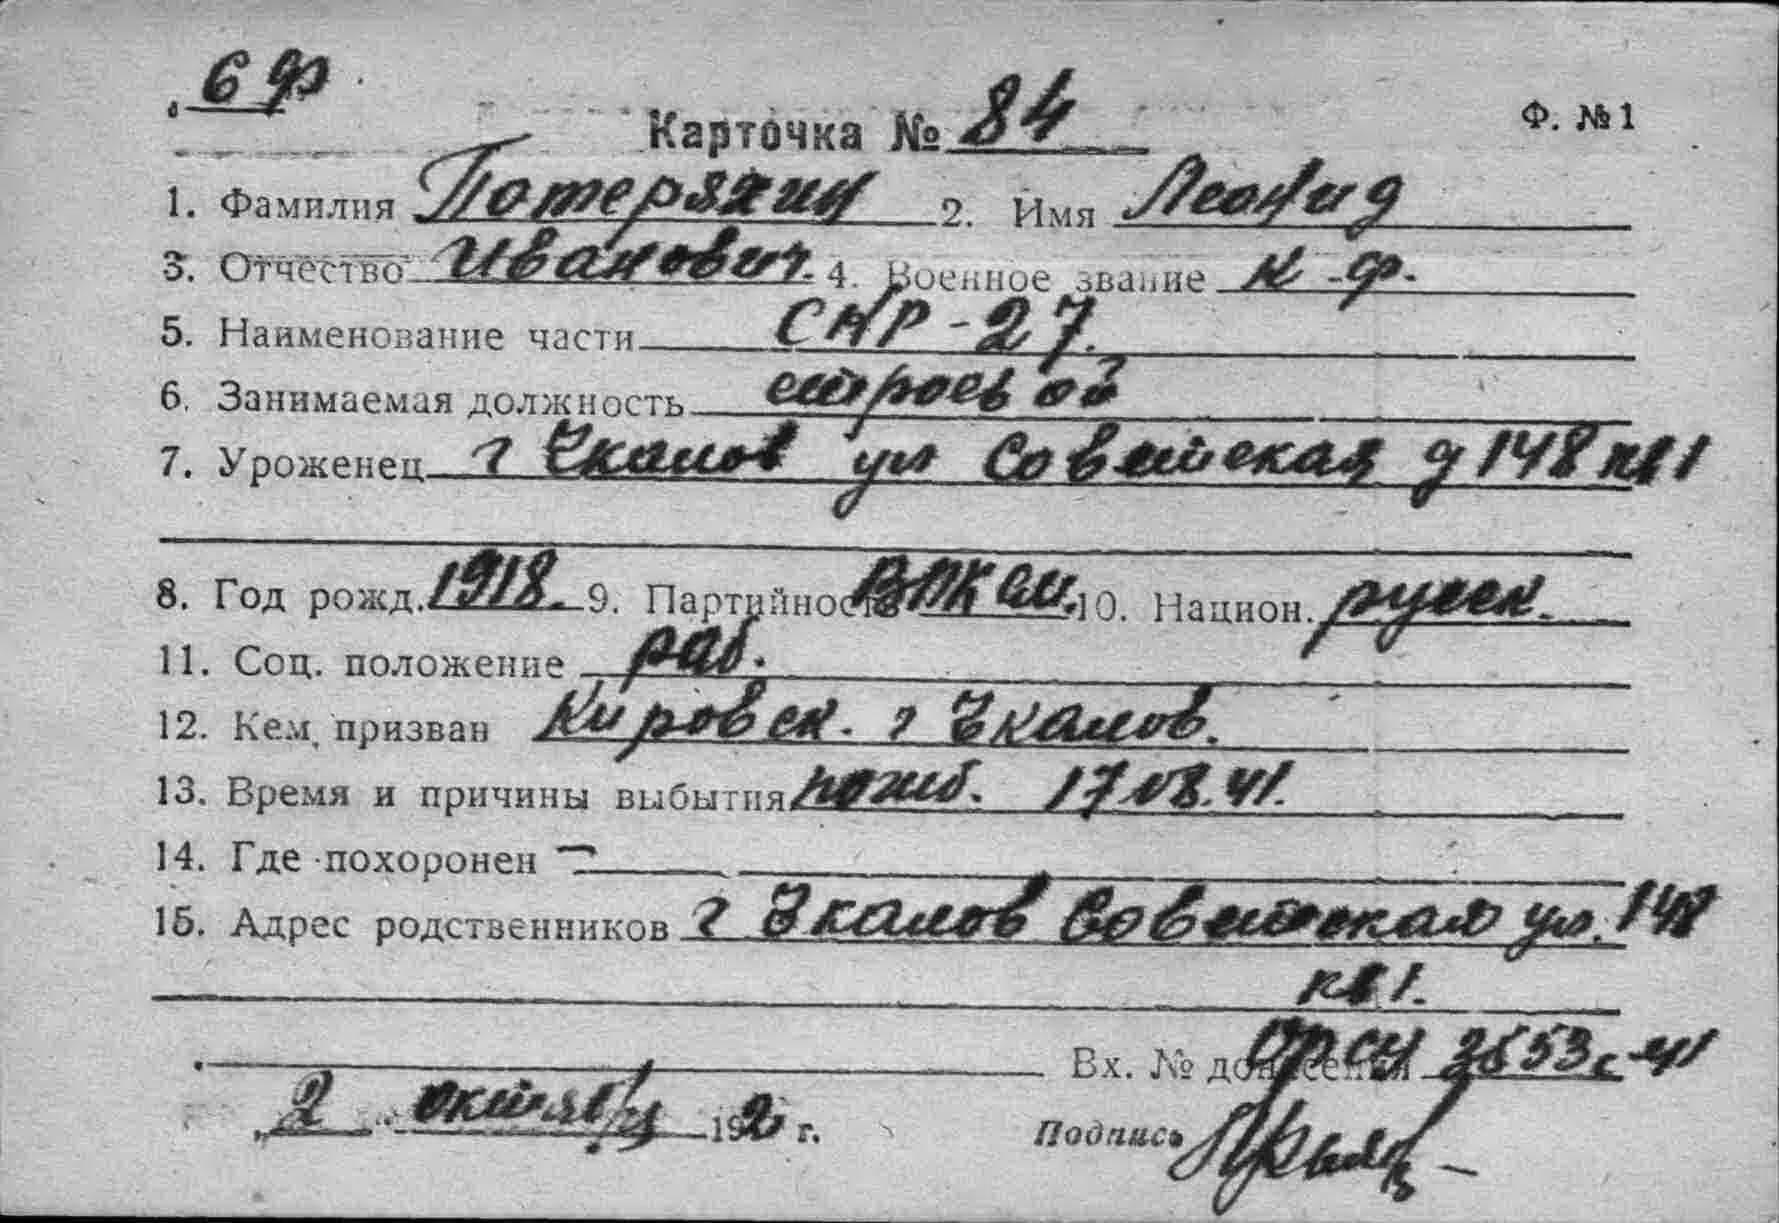 6 ф
Карточка № 84 Ф. № 1
1. Фамилия Потеряхин 2. Имя Леонид
3. Отчество Иванович. 4. Военное звание к-ф.
5. Наименование части СНР-27.
6. Занимаемая должность строевой
7. Уроженец г Чкалов ул Советская д 148 кв 1
8. Год рожд. 1918. 9. Партийность ВЛКСМ. 10. Национ. русск.
11. Соц. положение раб.
12. Кем призван Кировск. г Чкалов.
13. Время и причины выбытия погиб. 17.08.41.
14. Где похоронен —
15. Адрес родственников г Чкалов Советская ул. 148
кв 1.
Вх. № донесения 3553с-41
2 октября 192 г. Подпись